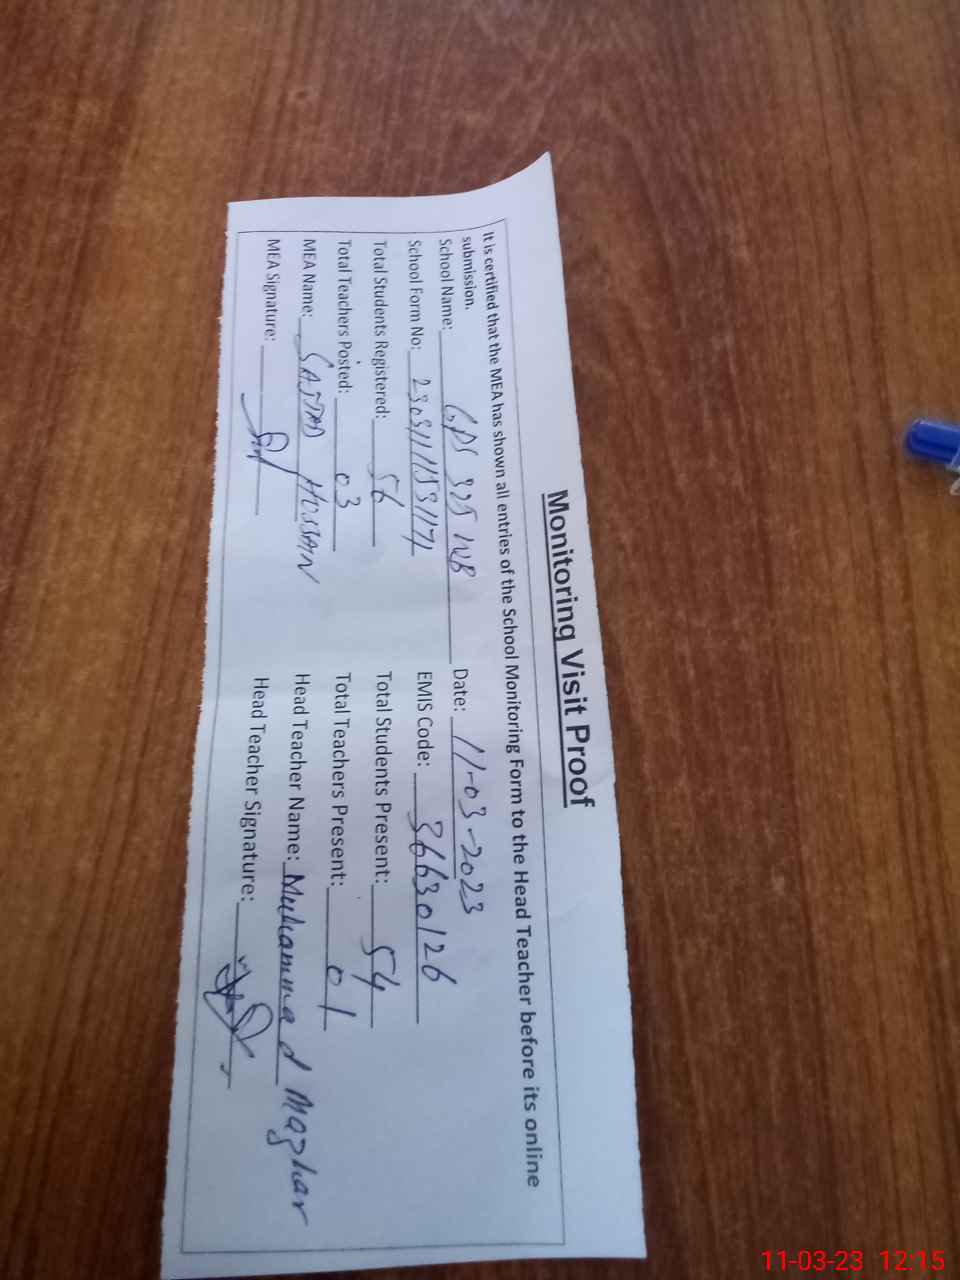 Monitoring Visit Proof
It is certified that the MEA has shown all entries of the School Monitoring Form to the Head Teacher before its online
submission.
School Name: GPS 325 WB Date: 11-03-2023
School Form No: EMIS Code: 36630126
Total Students Registered: 56 Total Students Present: 54
Total Teachers Posted: 03 Total Teachers Present: 01
MEA Name: SAJJAD HUSSAIN Head Teacher Name: Muhammad Mazhar
MEA Signature: Head Teacher Signature:
11-03-23 12:15